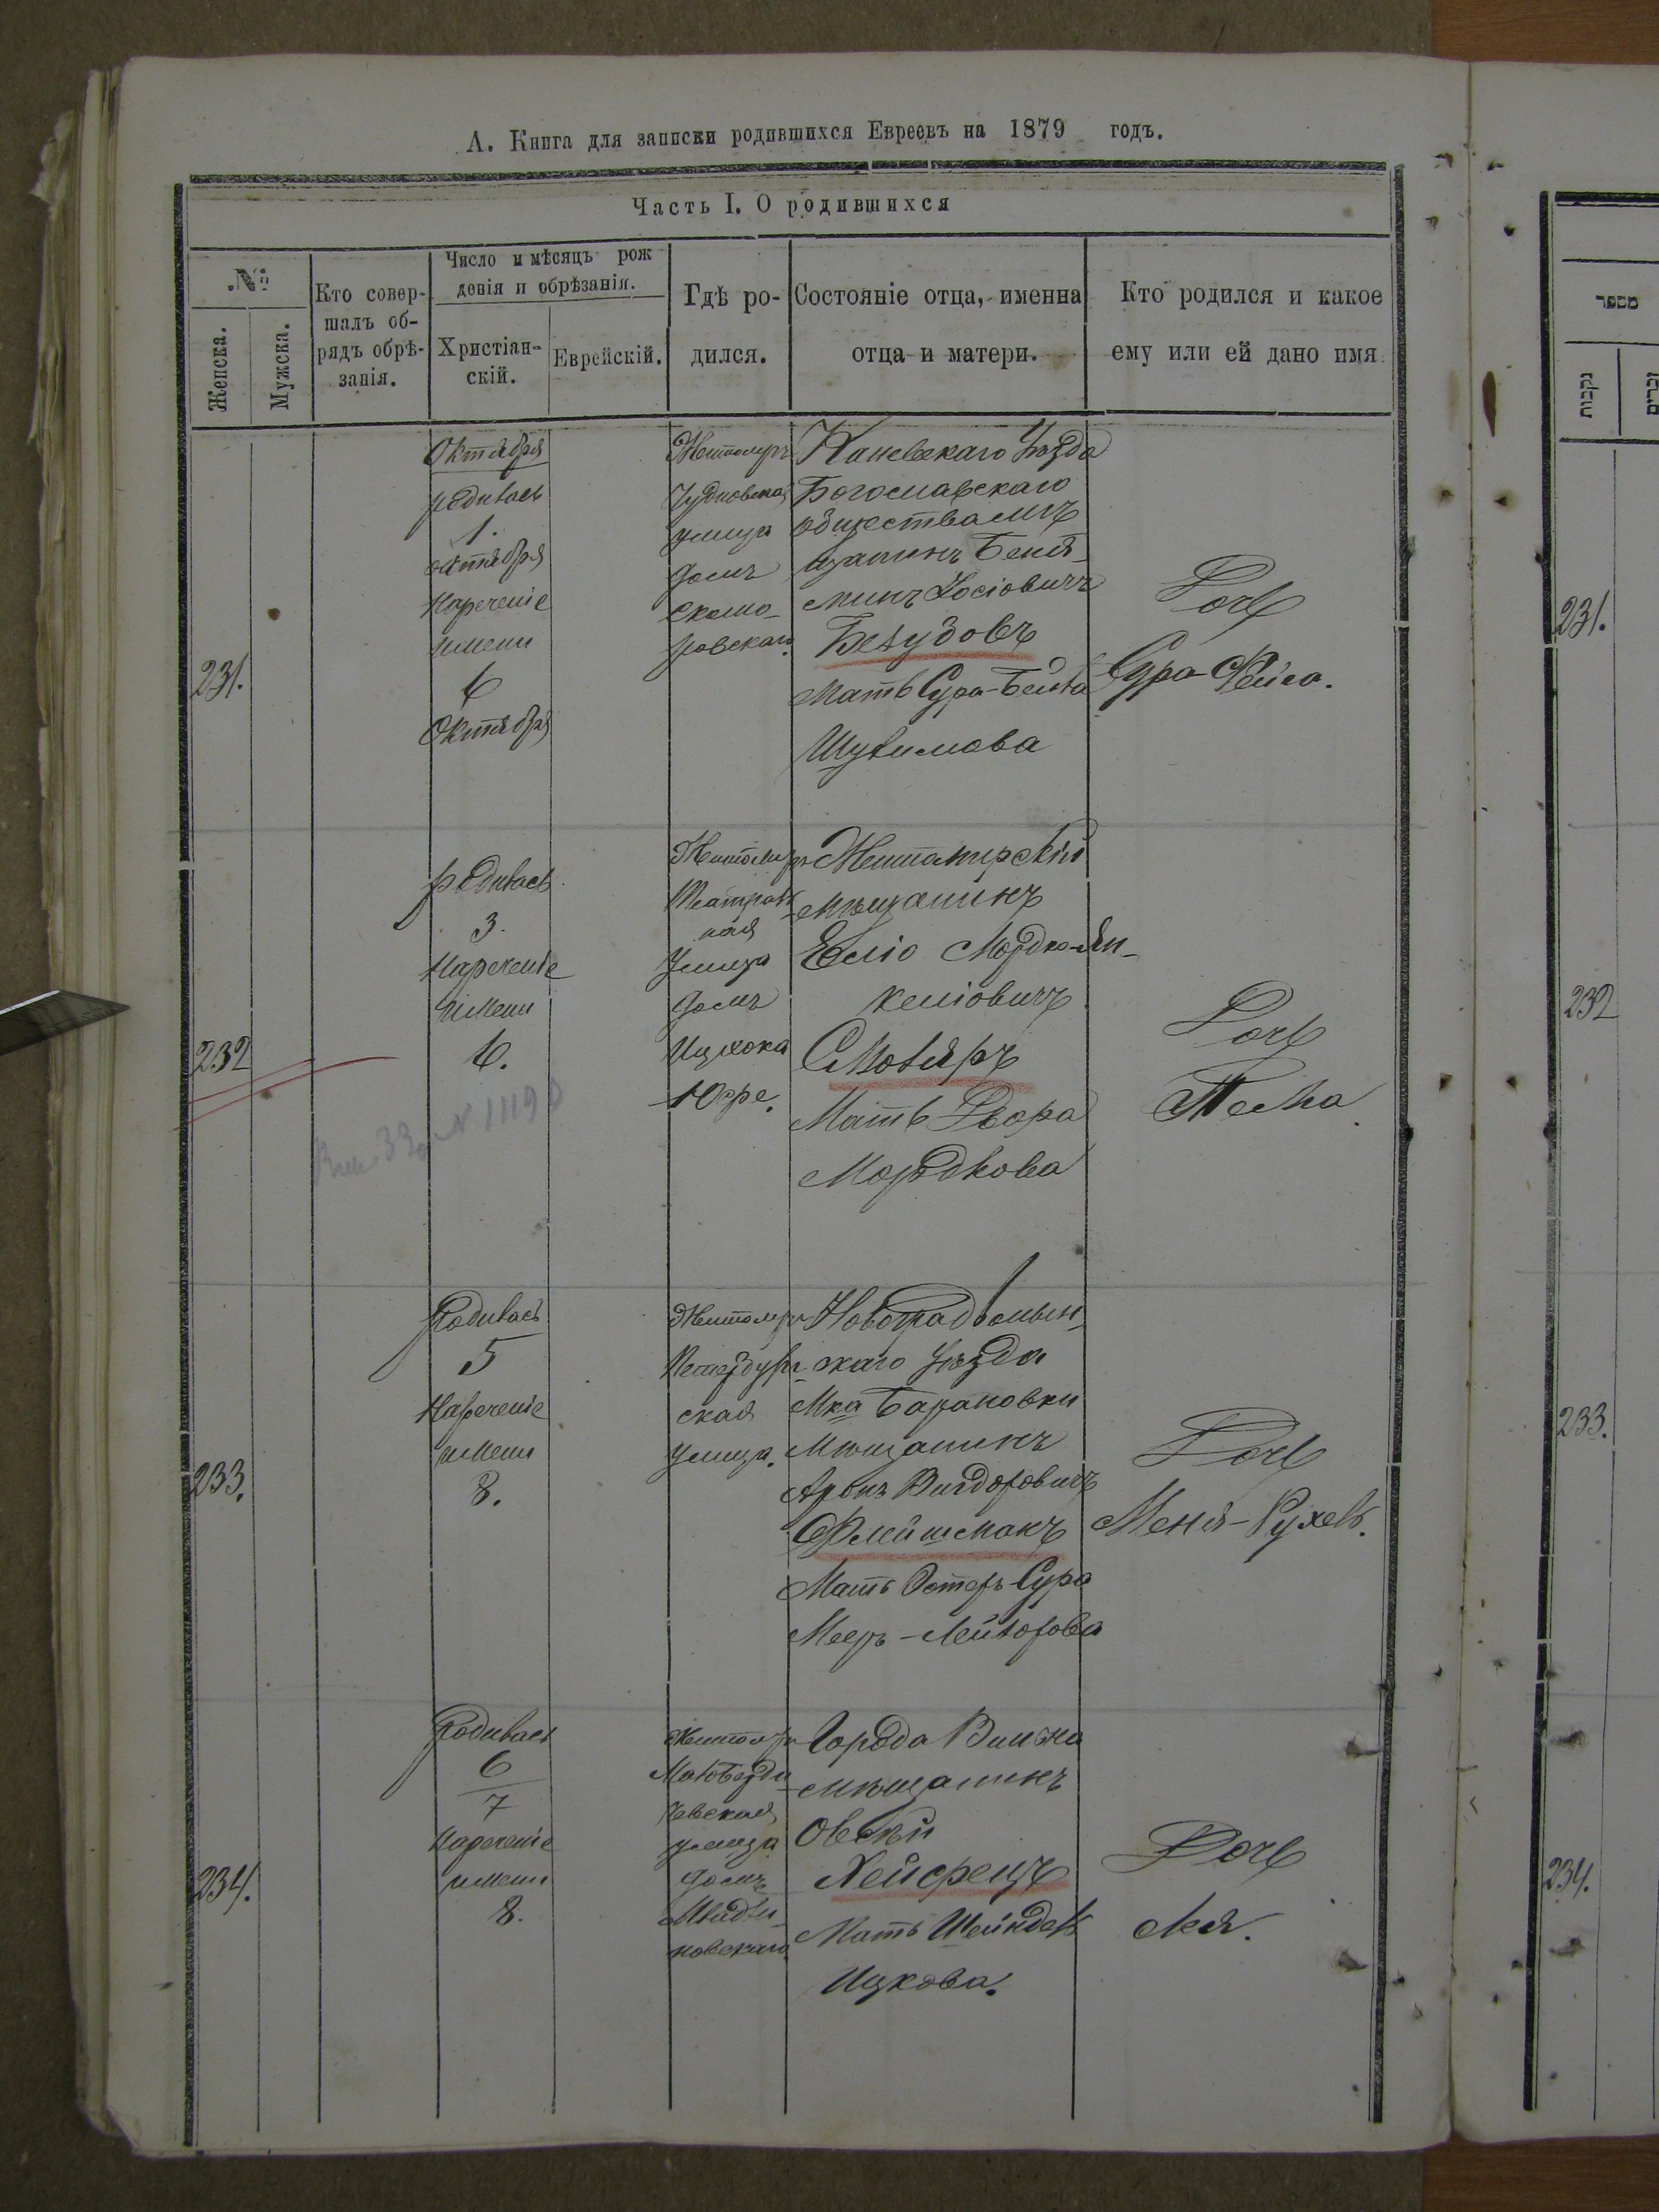 А. Книга для записки родившихся Евреевъ на 1879 годъ.
Часть I. О родившихся
№
Женска.
Мужска.
Кто совер-
шалъ об-
рядъ обрѣ-
занія.
Число и мѣсяцъ рож
денія и обрѣзанія.
Христіан-
скій.
Еврейскій.
Гдѣ ро-
дился.
Состояніе отца, именна
отца и матери.
Кто родился и какое
ему или ей дано имя
231.
Октября
родилась
1.
октября
Нареченіе
имени
6
Октября
Житомиръ
Чудновская
улица
домъ
Скомо-
ровскаго.
Каневскаго Уѣзда
Богославскаго
общества мѣ
щанинъ Беня-
минъ Іосіовичъ
Безудовъ
Мать Сура-Бейла
Шулимова
Дочь
Сура-Фейга.
232
родилась
3.
Нареченіе
имени
6.
Житомиръ
Театраль
ная
Улица
домъ
Ицхока
Юфре.
Житомирскій
мѣщанинъ
Еліо Мордко-Ян-
келіовичъ
Столяръ
Мать Двора
Мордкова
Дочь
Песha
233.
Родилась
5
Нареченіе
имени
8.
Житомиръ
Петербург-
ская
улица.
Новоградволын-
скаго Уѣзда
Мка Барановки
Мѣщанинъ
Аронъ Вигдоровичъ
Флейшманъ
Мать Эстеръ-Сура
Мееръ-Лейзорова
Дочь
Меня-Рухель.
234.
Родилась
6
7
нареченіе
имени
8.
Житомиръ
Малобердичевская
улица
домъ
новскаго
Города Вильна
мѣщанинъ
Овсѣй
Хейфецъ
Мать Шейндель
Ицкова.
Дочь
Лея.
מספר
נקבות
זכרים
231.
232
233.
234.